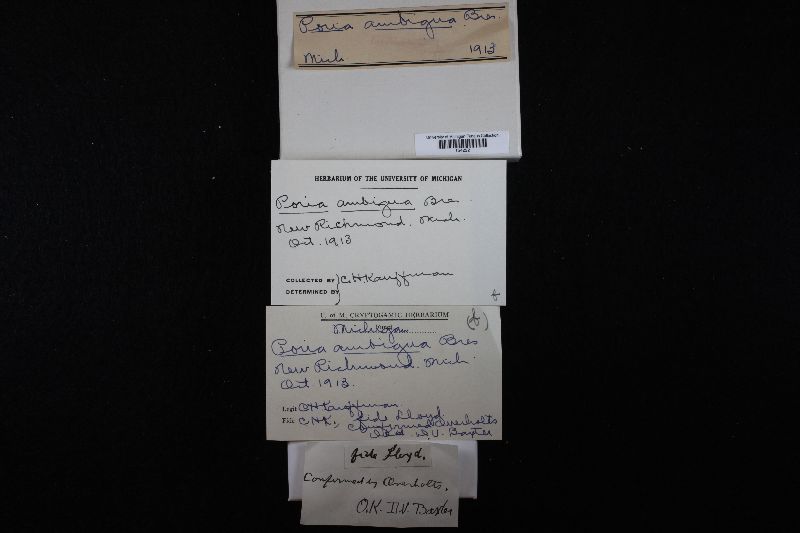 Poria ambigua Bres.
Mich 1913
University of Michigan Fungus Collection
HERBARIUM OF THE UNIVERSITY OF MICHIGAN
Poria ambigua Bres.
New Richmond, Mich.
Oct. 1913
COLLECTED BY } C. H. Kauffman
DETERMINED BY
f
U. of M. CRYPTOGAMIC HERBARIUM
(f)
Michigan
Poria ambigua Bres
New Richmond, Mich.
Oct 1913.
Legit C H Kauffman
Fide C.H.K. fide Lloyd
Confirmed Overholts
O.K. D. V. Baxter
fide Lloyd.
Confirmed by Overholts.
O.K. D.V. Baxter